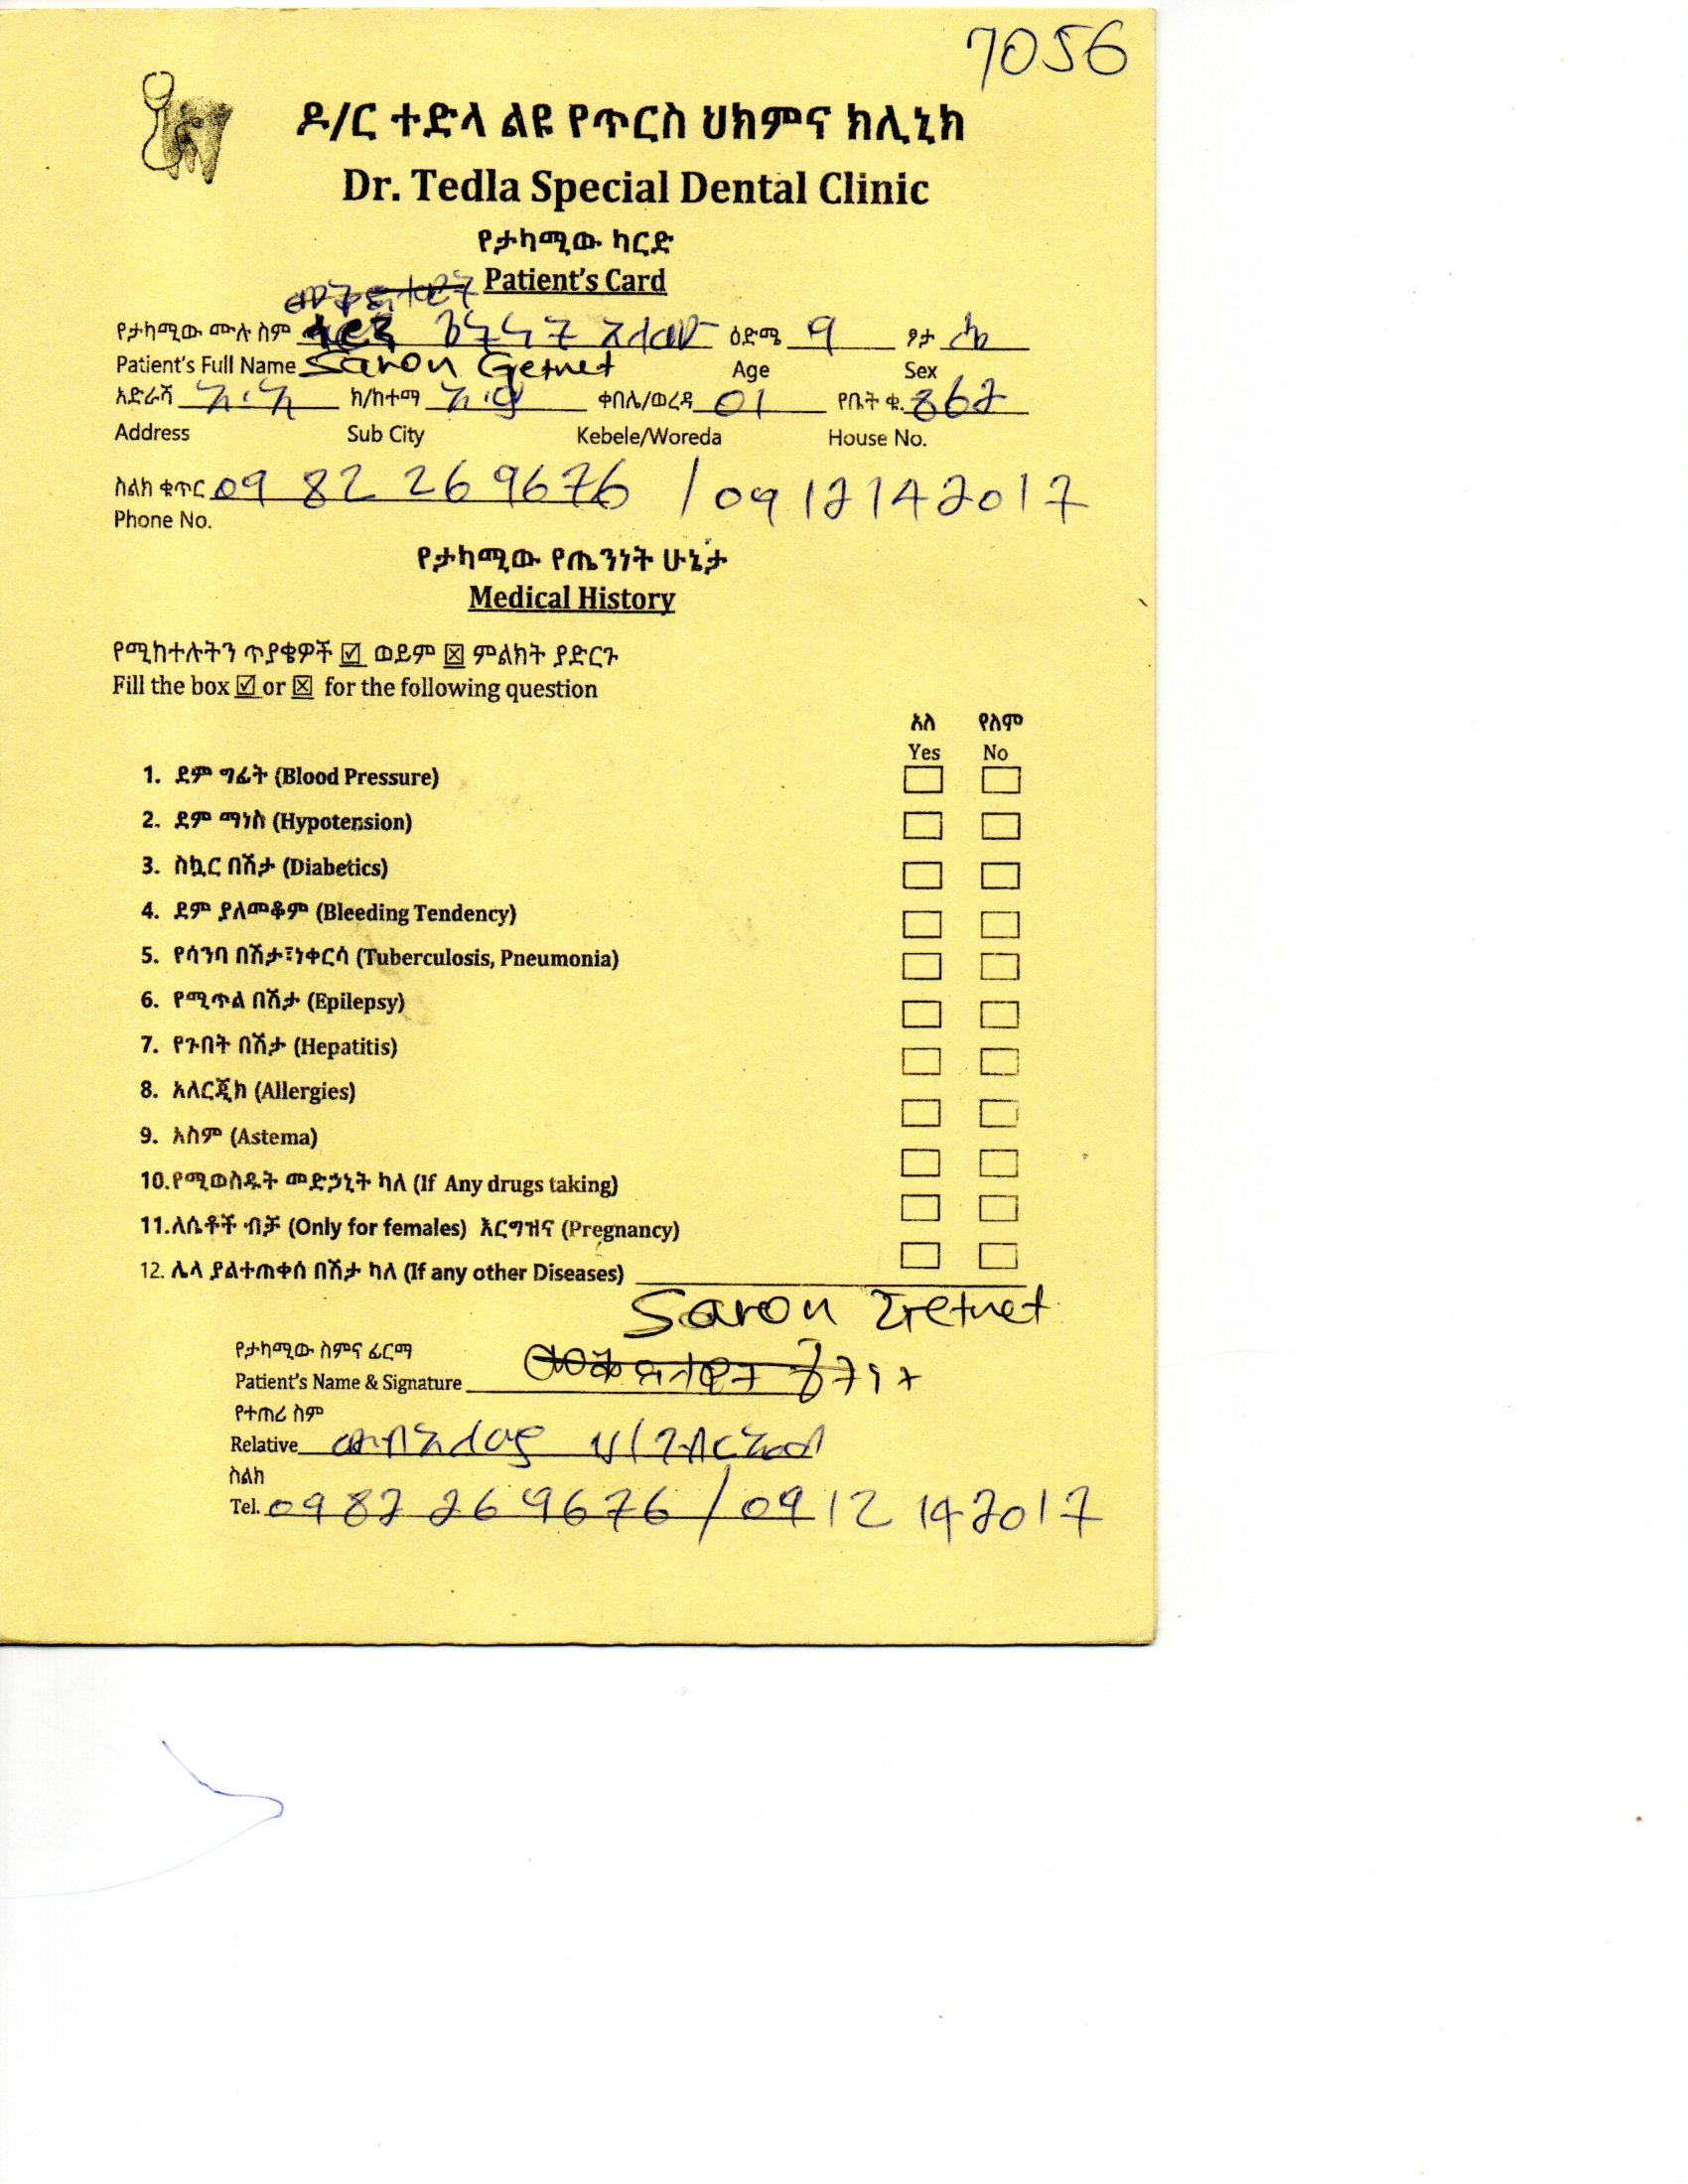 7056
ዶ/ር ተድላ ልዩ የጥርስ ህክምና ክሊኒክ
Dr. Tedla Special Dental Clinic
የታካሚው ካርድ
Patient's Card
የታካሚው ሙሉ ስም ዕድሜ 9 ፆታ ሴ
Patient's Full Name Saron Getnet Age Sex
አድራሻ አ.አ ክ/ከተማ ቀበሌ/ወረዳ 01 የቤት ቁ. 867
Address Sub City Kebele/Woreda House No.
ስልክ ቁጥር 09 82 26 9676 / 0912142017
Phone No.
የታካሚው የጤንነት ሁኔታ
Medical History
የሚከተሉትን ጥያቄዎች ☑ ወይም ☒ ምልክት ያድርጉ
Fill the box ☑ or ☒ for the following question
አለ የለም
Yes No
1. ደም ግፊት (Blood Pressure)
2. ደም ማነስ (Hypotension)
3. ስኳር በሽታ (Diabetics)
4. ደም ያለመቆም (Bleeding Tendency)
5. የሳንባ በሽታ፣ነቀርሳ (Tuberculosis, Pneumonia)
6. የሚጥል በሽታ (Epilepsy)
7. የጉበት በሽታ (Hepatitis)
8. አለርጂክ (Allergies)
9. አስም (Astema)
10.የሚወስዱት መድኃኒት ካለ (If Any drugs taking)
11.ለሴቶች ብቻ (Only for females) እርግዝና (Pregnancy)
12. ሌላ ያልተጠቀሰ በሽታ ካለ (If any other Diseases)
Saron Getnet
የታካሚው ስምና ፊርማ
Patient's Name & Signature
የተጠሪ ስም
Relative
ስልክ
Tel. 0982 269676 / 0912 142017